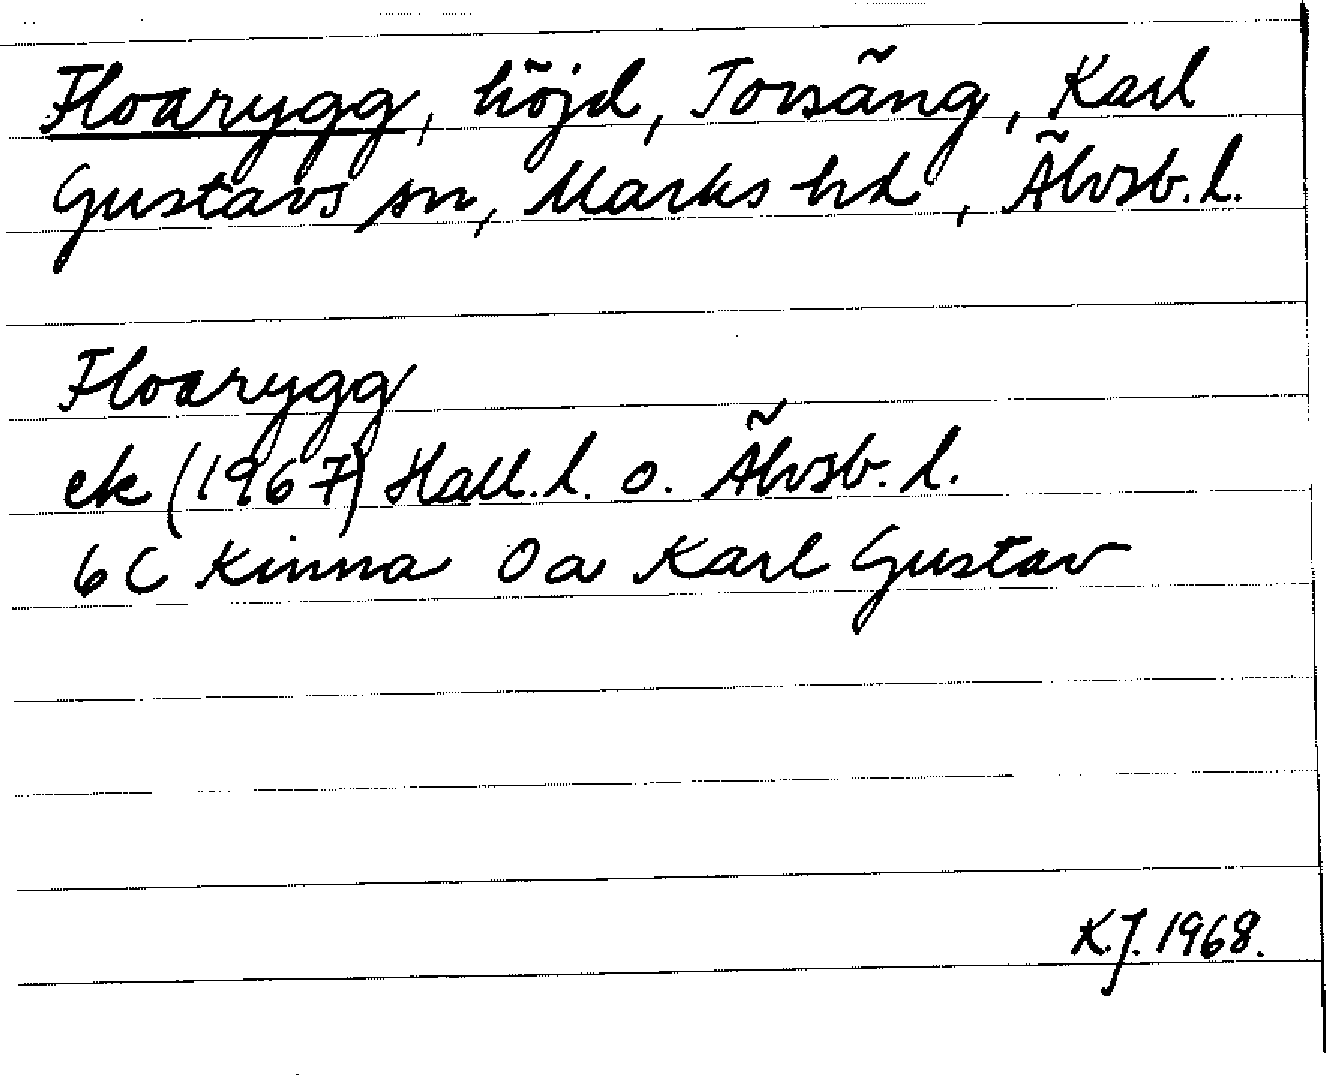 Floarygg, höjd, Torsäng, Karl
Gustavs sn, Marks hd, Älvsb. l.
Floarygg
ek (1967) Hall. l. o. Älvsb. l.
6C Kinna 0a Karl Gustav
K.J. 1968.